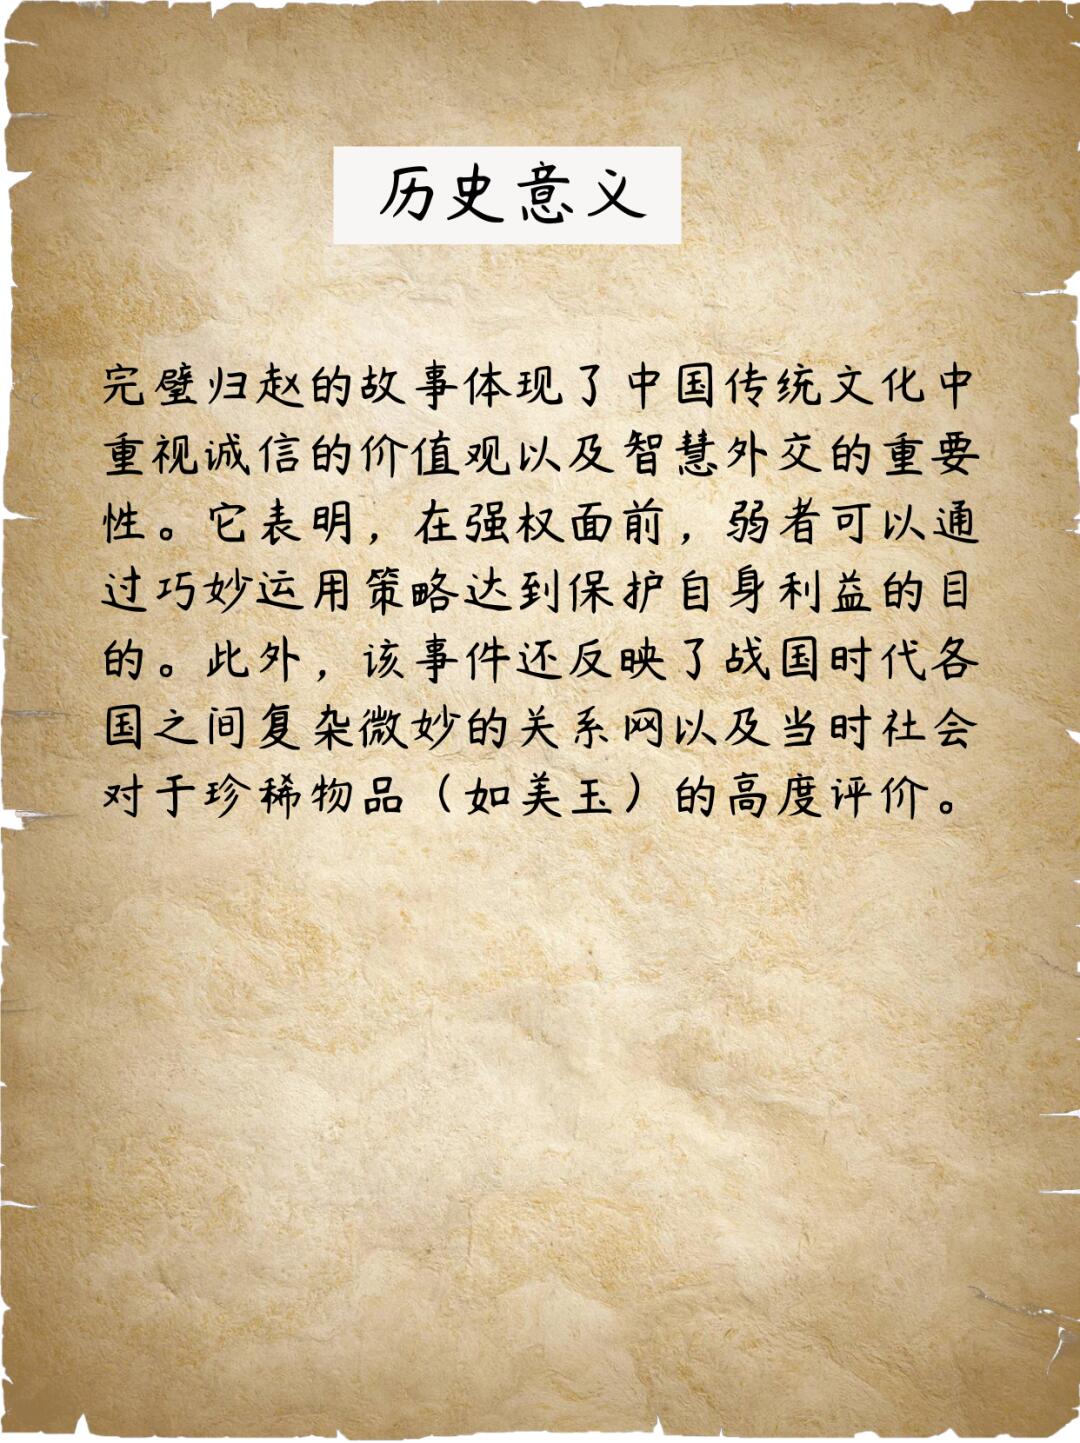 历史意义
完璧归赵的故事体现了中国传统文化中
重视诚信的价值观以及智慧外交的重要
性。它表明，在强权面前，弱者可以通
过巧妙运用策略达到保护自身利益的目
的。此外，该事件还反映了战国时代各
国之间复杂微妙的关系网以及当时社会
对于珍稀物品（如美玉）的高度评价。